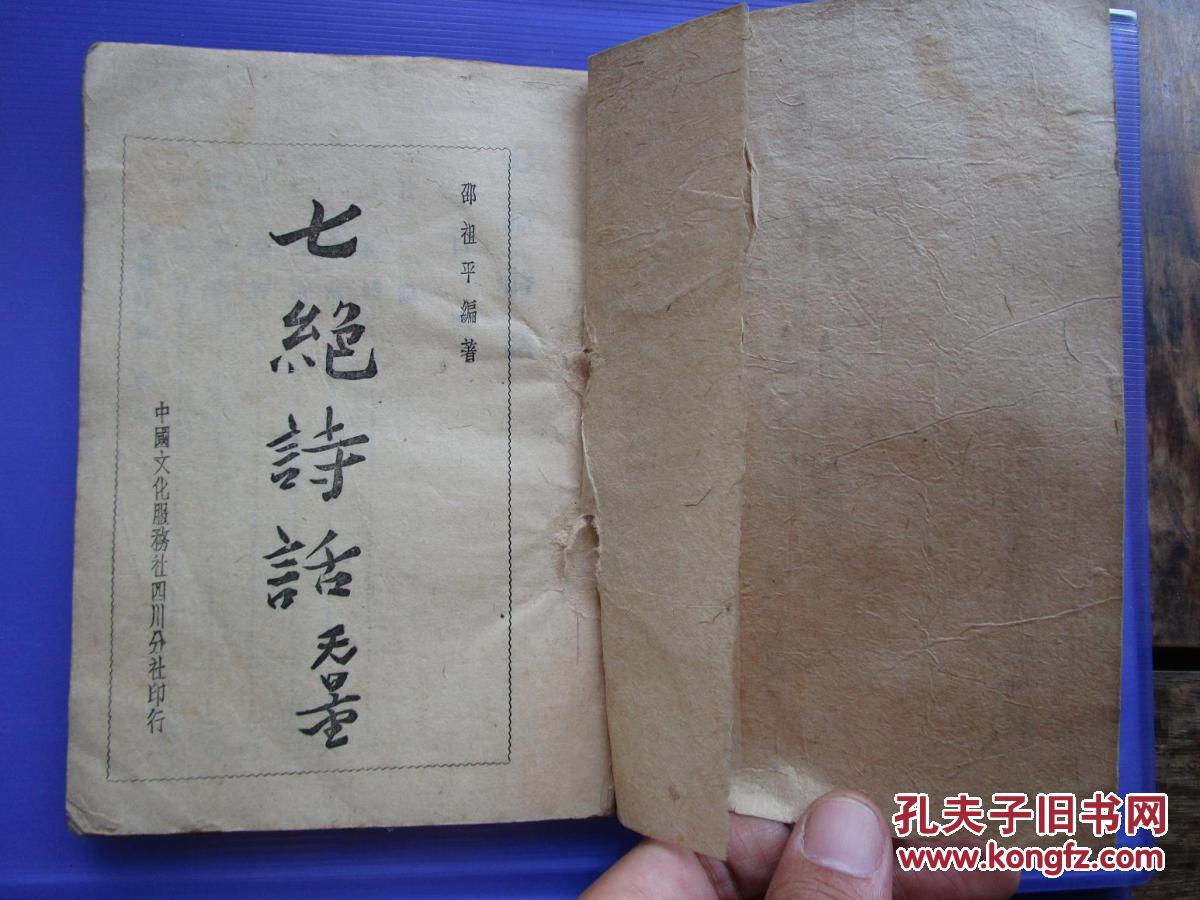 邵祖平編著
七絕詩話
无量
中國文化服務社四川分社印行
孔夫子旧书网
www.kongfz.com